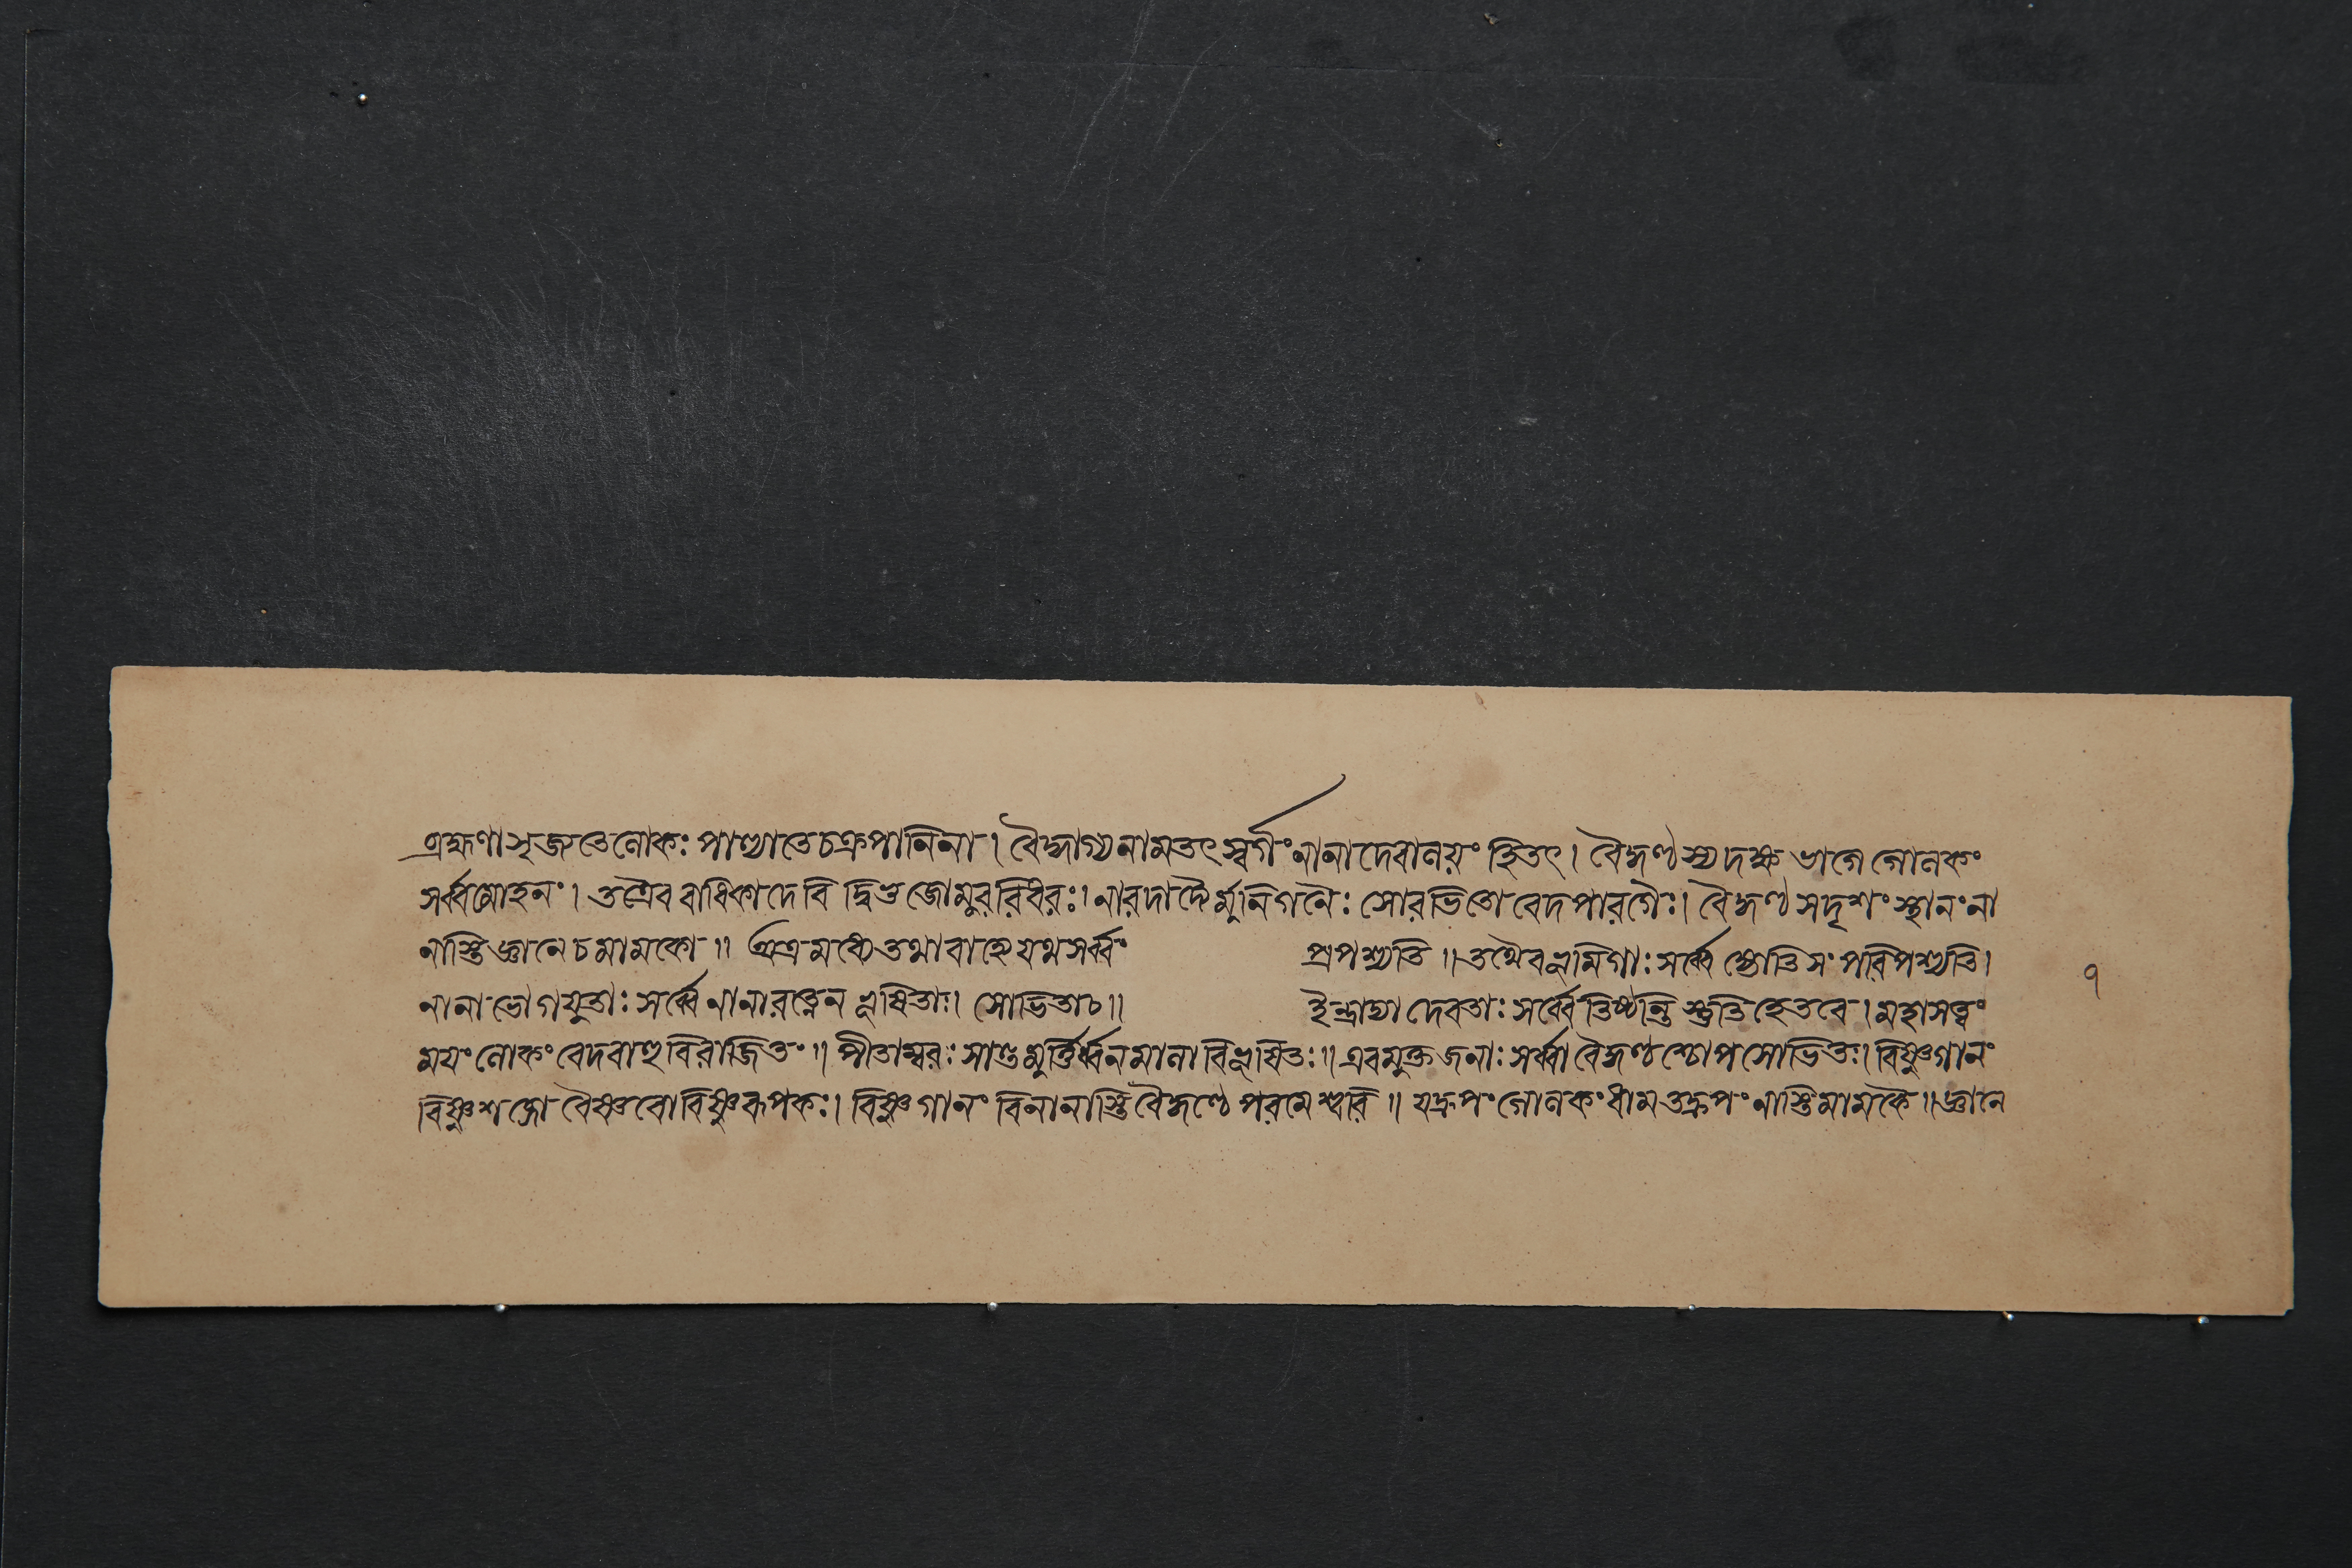 ব্রহ্মণা সৃজতে লোকঃ পাল্যাতে চক্রপানিনা। বৈকুণ্ঠাগ্য নামতৎ স্বর্গং নানাদেবালয়ং হিতৎ। বৈকুণ্ঠস্য দক্ষ ভাগে গোলকং
সর্ব্বমোহনং। তত্রৈব রাধিকা দেবি দ্বিভুজো মুররিধরঃ। নারদাদ্যৈর্মুনিগনৈঃ সোরভিতো বেদপারগৈঃ। বৈকুণ্ঠ সদৃশং স্থানং না
নাস্তি জ্ঞানে চ মামকো॥ অত্র মধ্যে তথা বাহ্যে যথ সর্ব্বং প্রপশ্যতি॥ তথৈব ভূমিগাঃ সর্ব্বে জ্যোতিসং পরিপশ্যতি।
নানা ভোগযুতাঃ সর্ব্বে নানারত্নেন ভূষিতাঃ। সোভিতাচ॥ ইন্দ্রাদ্যা দেবতাঃ সর্ব্বে তিষ্ঠন্তি স্তুতি হেতবে। মহাসত্ত্বং
ময়ং লোকং বেদবাহু বিরাজিতং॥ পীতাম্বরঃ সাণ্ড মুর্ত্তির্ব্বনমালা বিভূষিতঃ॥ এবমুক্ত জনাঃ সর্ব্বা বৈকুণ্ঠশ্চোপসোভিতঃ। বিষ্ণুগানং
বিষ্ণুশঙ্গো বৈষ্ণবো বিষ্ণুরূপকঃ। বিষ্ণুগানং বিনা নাস্তি বৈকুণ্ঠে পরমেশ্বরি॥ যদ্রুপং গোলকং ধাম তদ্রুপং নাস্তি মামকৈ॥ জ্ঞানে
৭